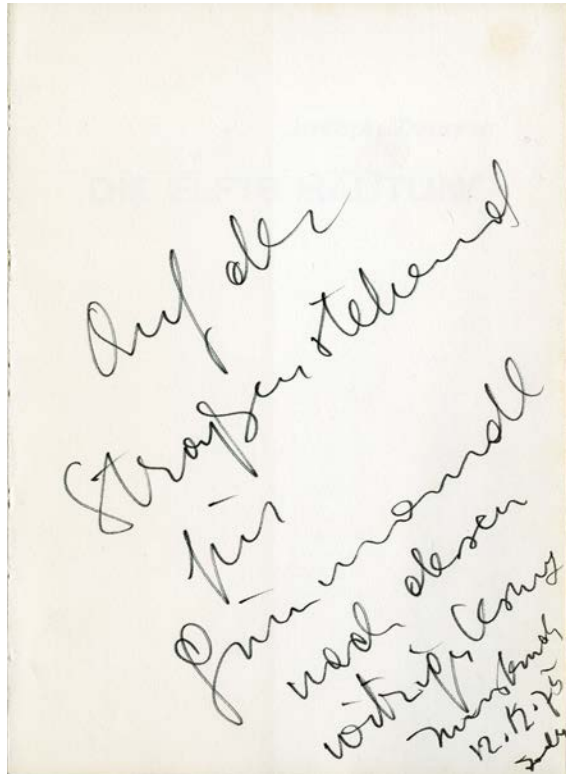 Auf der
Straßen stehend
für
Grünmandl
nach dessen
witziger Lesung
Innsbruck
12.12.75